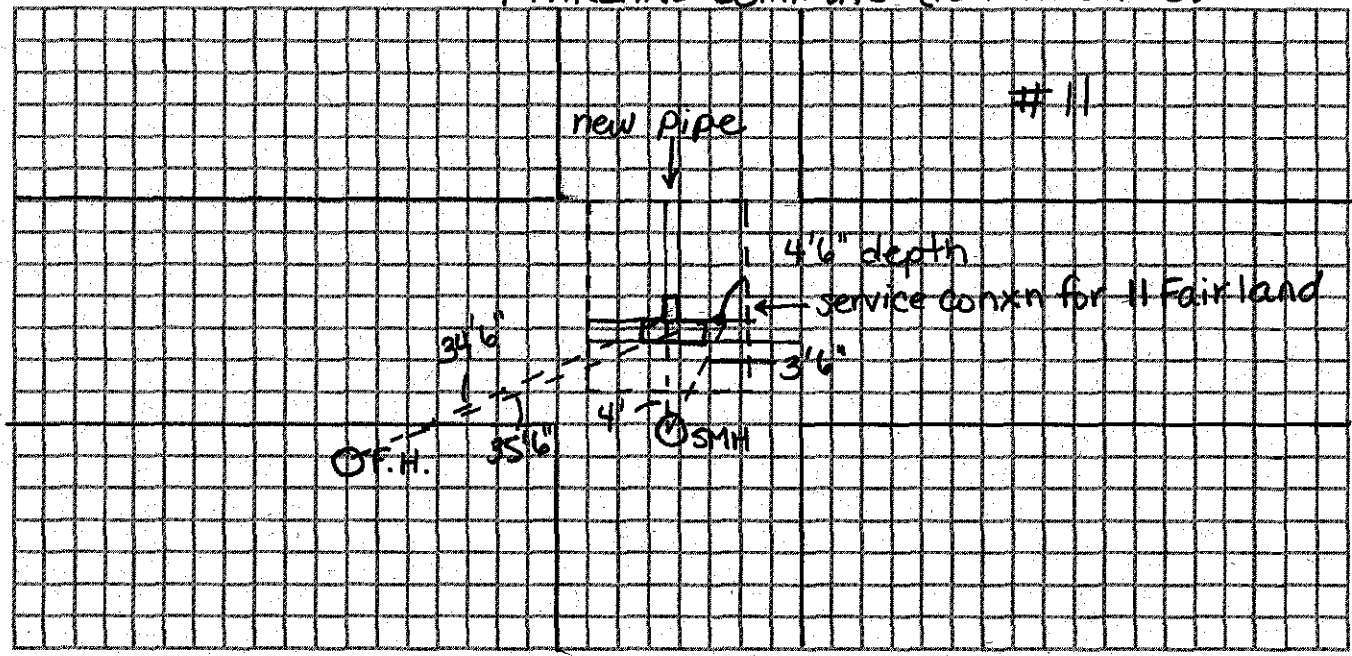 # 11
new pipe
4'6" depth
service conxn for 11 Fairland
34'6"
3'6"
4'
35'6"
SMH
F.H.